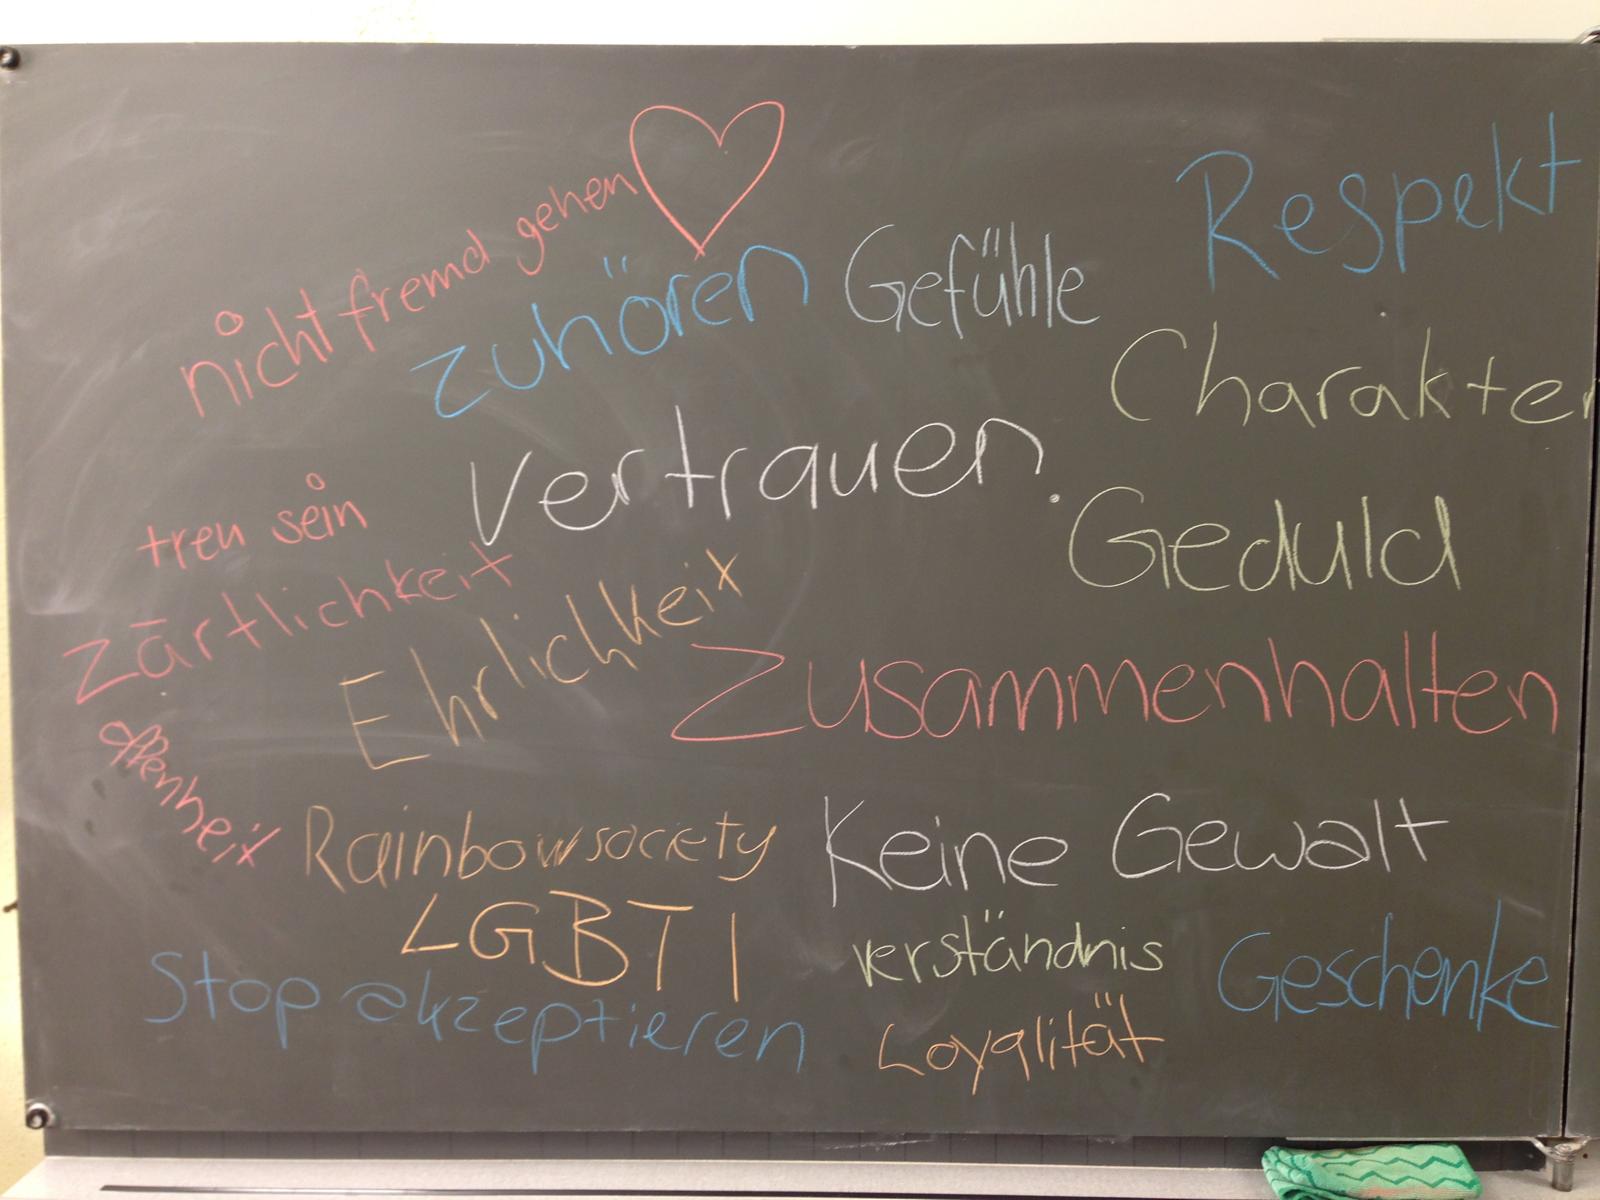 nicht fremd gehen
zuhören
Gefühle
Respekt
Charakter
Vertrauen.
treu sein
Geduld
Zärtlichkeit
Ehrlichkeit
Zusammenhalten
offenheit
Rainbowsociety
Keine Gewalt
LGBTI
verständnis
Geschenke
Stop akzeptieren
Loyalität